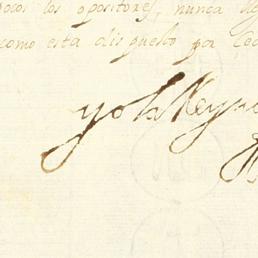 pocos los opositores, nunca
como está dispuesto por
yo la Reyna